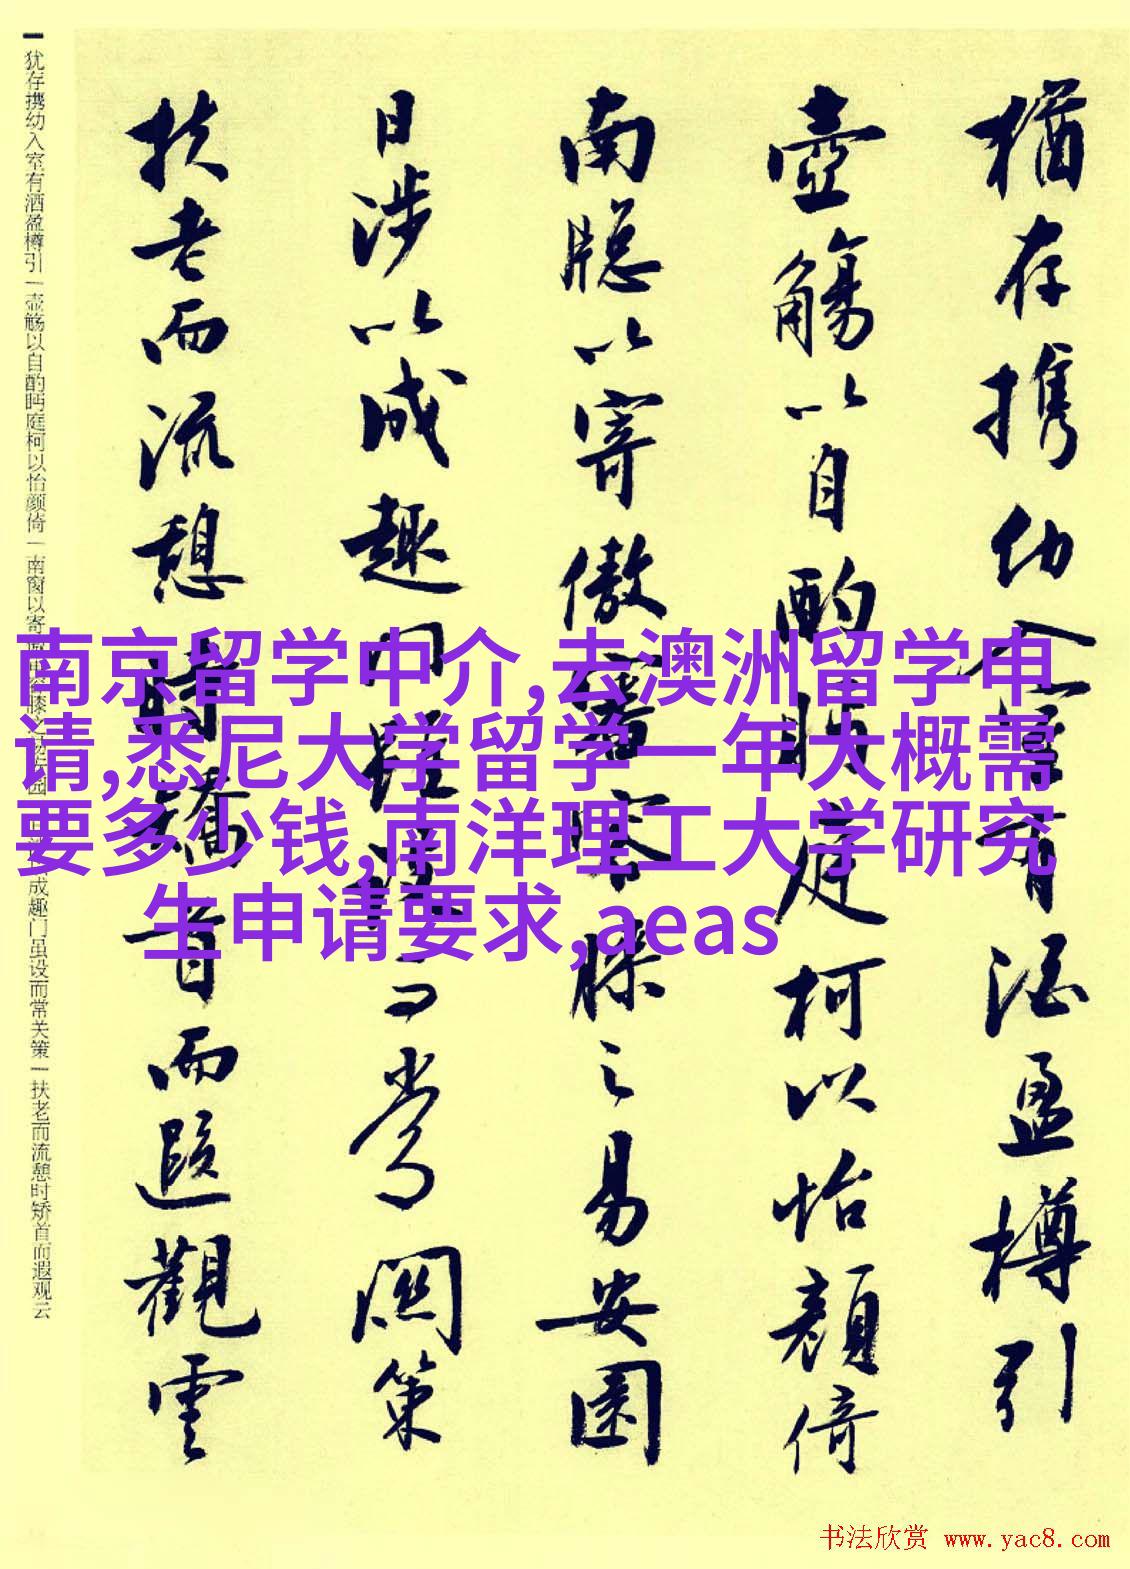 猶存携幼入室有酒盈樽引
壺觴以自酌眄庭柯以怡顔倚
南牕以寄傲審容膝之易安園
日涉以成趣門雖設而常関策
扶老而流憩時矯首而遐觀雲
犹存携幼入室有酒盈樽引一壶觞以自酌眄庭柯以怡颜倚一南窗以寄
成趣门虽设而常关策一扶老而流憩时矫首而遐观云
南京留学中介,去澳洲留学申
请,悉尼大学留学一年大概需
要多少钱,南洋理工大学研究
生申请要求,aeas
书法欣赏 www.yac8.com